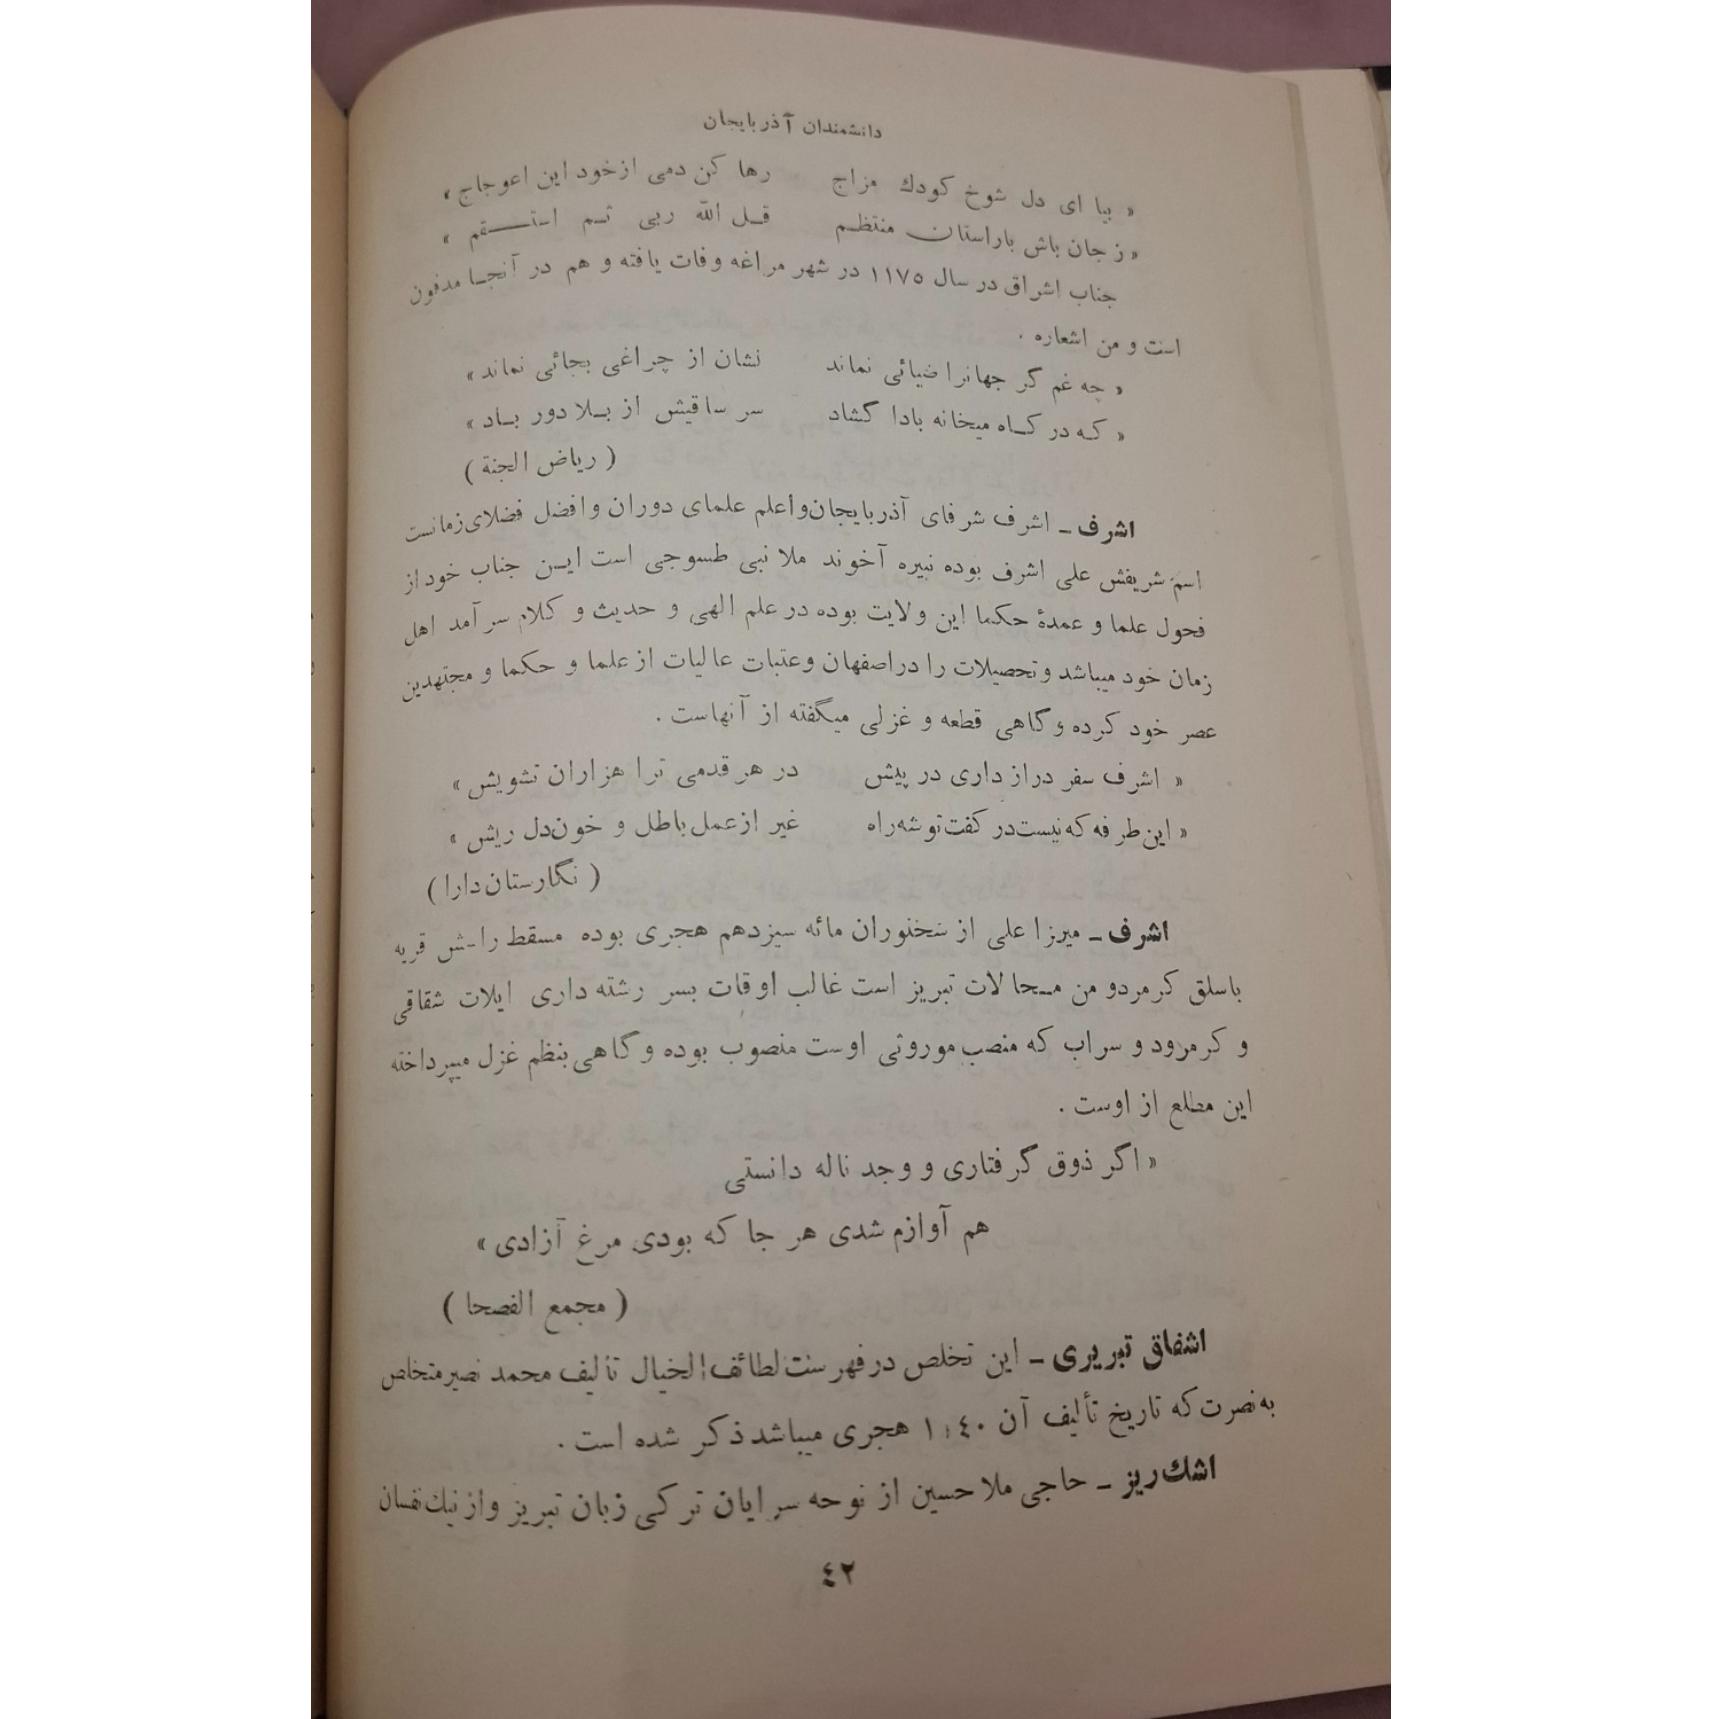 دانشمندان آذربایجان
« بیا ای دل شوخ کودك مزاج رها کن دمی ازخود این اعوجاج »
« ز جان باش باراستان منتظم قل الله ربی ثم استقم »
جناب اشراق در سال ۱۱۷۵ در شهر مراغه وفات یافته و هم در آنجا مدفون
است و من اشعاره .
« چه غم گر جهانرا ضیائی نماند نشان از چراغی بجائی نماند »
« که در گاه میخانه بادا گشاد سر ساقیش از بلا دور باد »
( ریاض الجنة )
اشرف ـ اشرف شرفای آذربایجان واعلم علمای دوران وافضل فضلای زمانست
اسم شریفش علی اشرف بوده نبیره آخوند ملا نبی طسوجی است این جناب خود از
فحول علما و عمدهٔ حکما این ولایت بوده در علم الهی و حدیث و کلام سرآمد اهل
زمان خود میباشد وتحصیلات را در اصفهان وعتبات عالیات از علما و حکما و مجتهدین
عصر خود کرده وگاهی قطعه و غزلی میگفته از آنهاست .
« اشرف سفر دراز داری در پیش در هر قدمی ترا هزاران تشویش »
« این طرفه که نیست در کفت توشه راه غیر ازعمل باطل و خون دل ریش »
( نگارستان دارا )
اشرف ـ میرزا علی از سخنوران مائه سیزدهم هجری بوده مسقط راسش قریه
باسلق کرمردو من محالات تبریز است غالب اوقات بسر رشته داری ایلات شقاقی
و کرمرود و سراب که منصب موروثی اوست منصوب بوده وگاهی بنظم غزل میپرداخته
این مطلع از اوست .
« اگر ذوق گرفتاری و وجد ناله دانستی
هم آوازم شدی هر جا که بودی مرغ آزادی »
( مجمع الفصحا )
اشفاق تبریری ـ این تخلص در فهرست لطائف الخیال تألیف محمد نصیر متخلص
به نصرت که تاریخ تألیف آن هجری میباشد ذکر شده است .
اشك ریز ـ حاجی ملا حسین از نوحه سرایان ترکی زبان تبریز واز نیك نفسان
٤٢